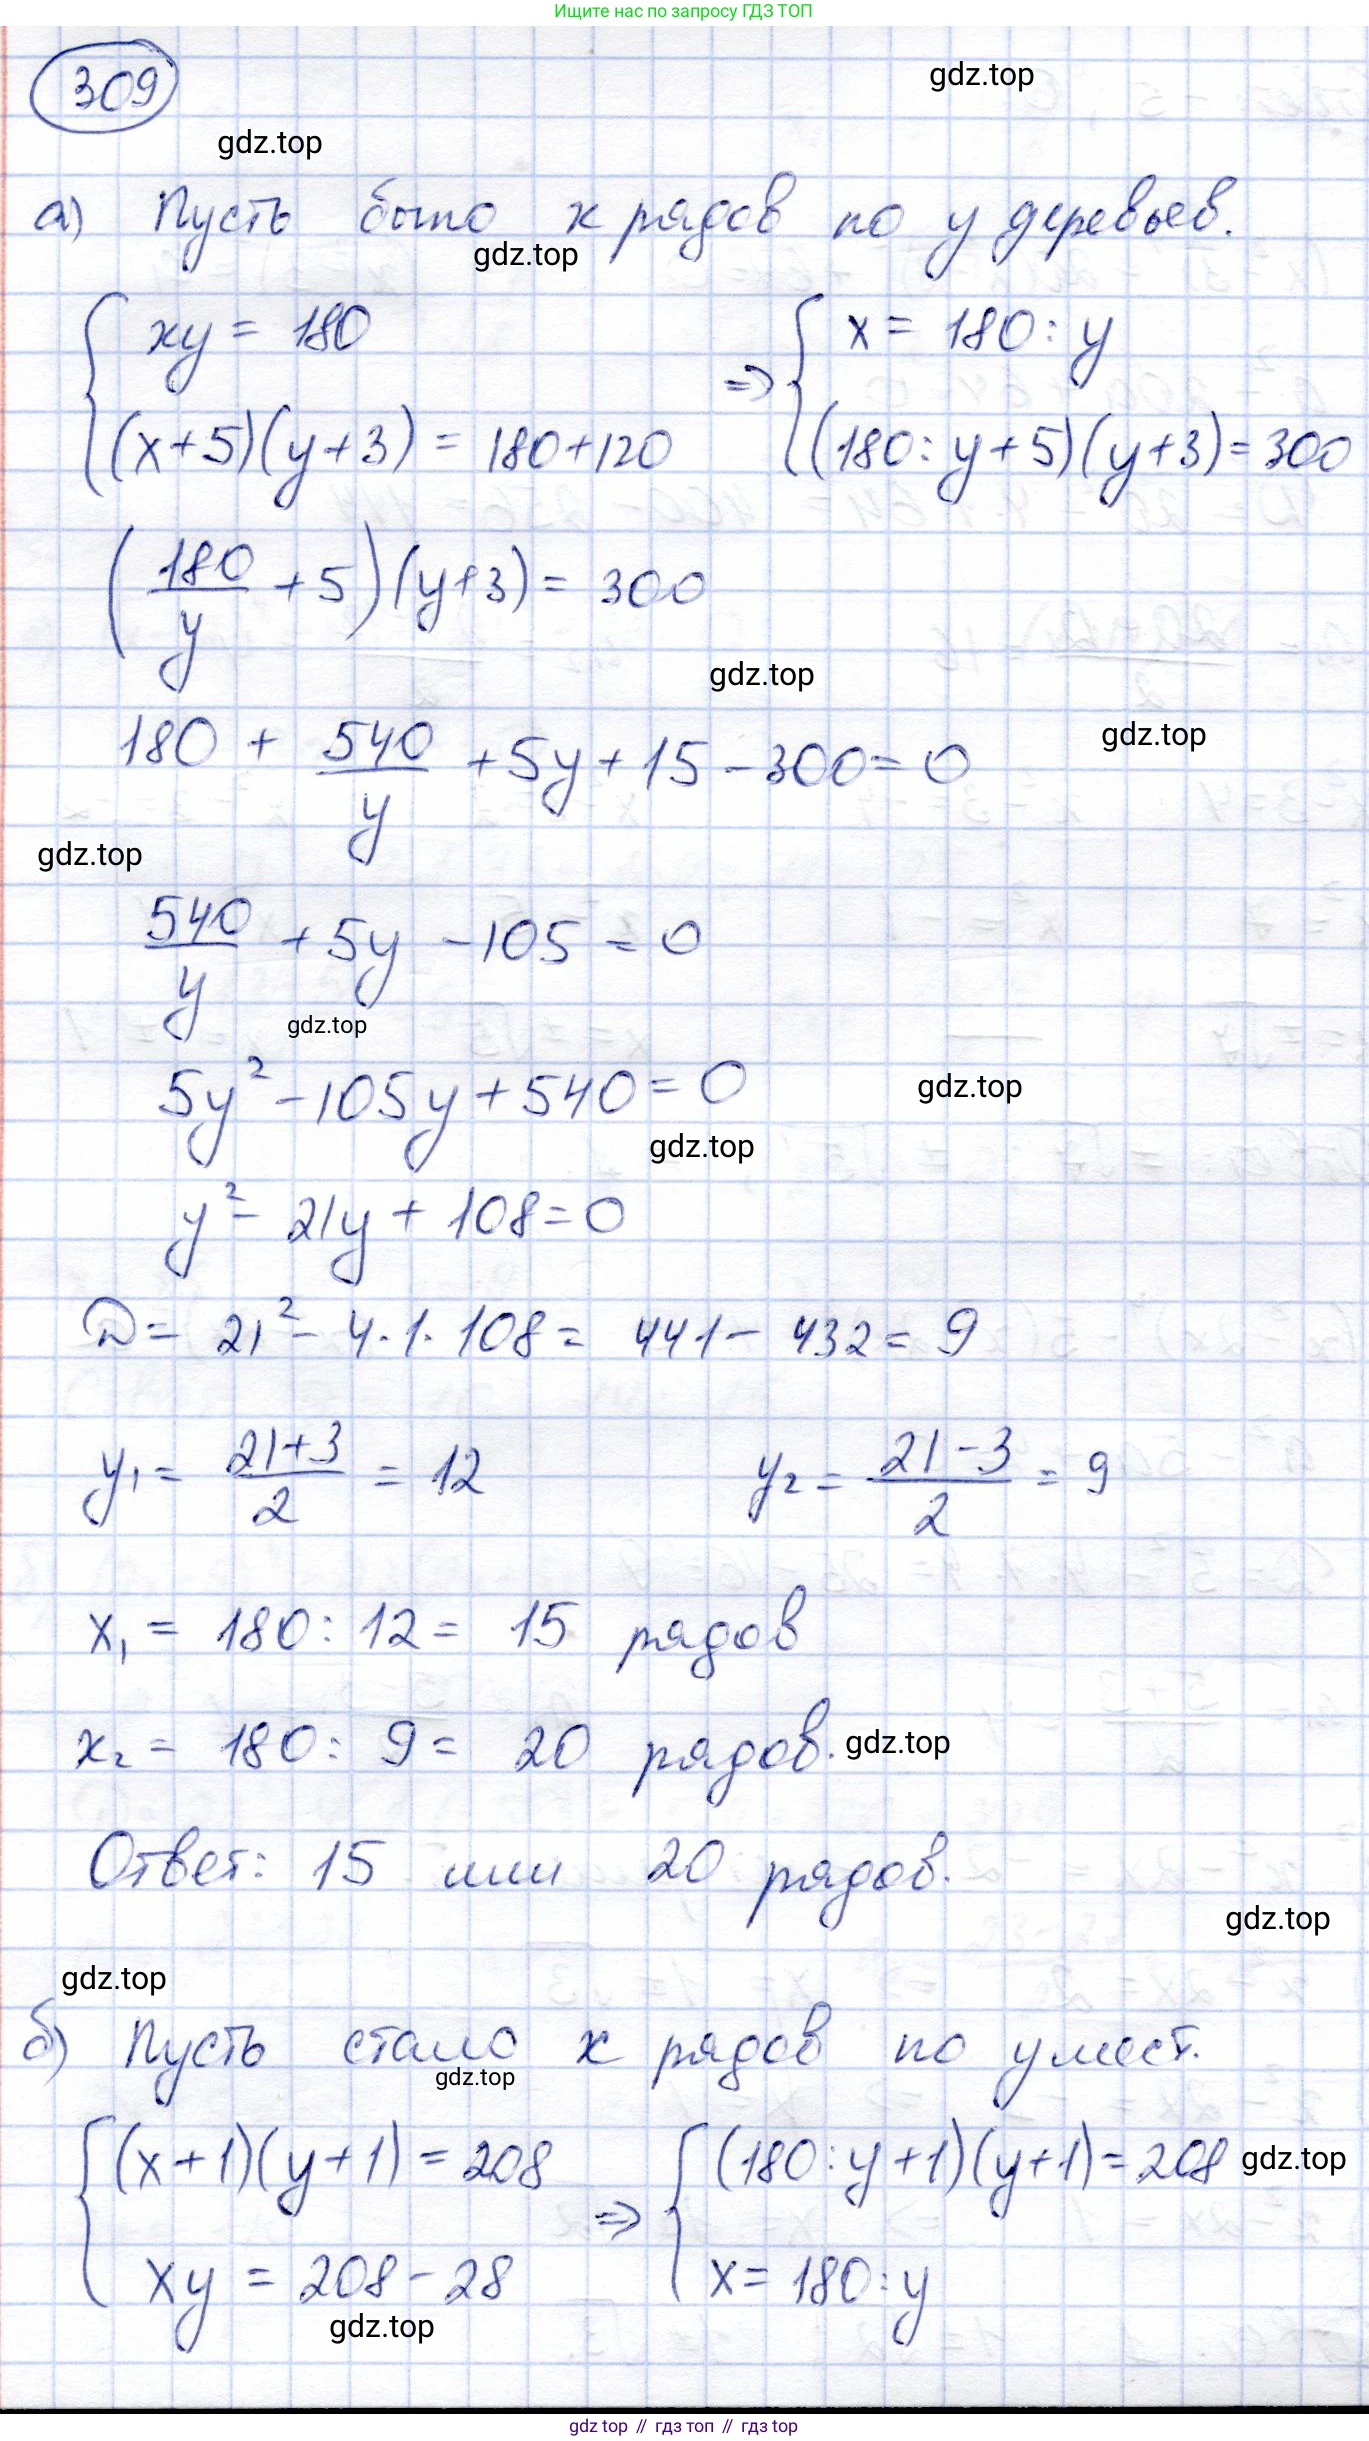 Ищите нас по запросу ГДЗ ТОП
309
gdz.top
gdz.top
а) Пусть было x рядов по y деревьев.
gdz.top
{ xy = 180 => { x = 180 : y
(x+5)(y+3) = 180+120 (180 : y+5)(y+3) = 300
(180/y + 5)(y+3) = 300
gdz.top
gdz.top
180 + 540/y + 5y + 15 - 300 = 0
gdz.top
540/y + 5y - 105 = 0
gdz.top
5y² - 105y + 540 = 0
gdz.top
gdz.top
y² - 21y + 108 = 0
D = 21² - 4·1·108 = 441 - 432 = 9
y₁ = (21+3)/2 = 12 y₂ = (21-3)/2 = 9
x₁ = 180 : 12 = 15 рядов
x₂ = 180 : 9 = 20 рядов.
gdz.top
Ответ: 15 или 20 рядов.
gdz.top
gdz.top
б) Пусть стало x рядов по y мест.
gdz.top
{ (x+1)(y+1) = 208 => { (180 : y+1)(y+1) = 208
gdz.top
xy = 208 - 28 x = 180 : y
gdz.top
gdz top // гдз топ // gdz top